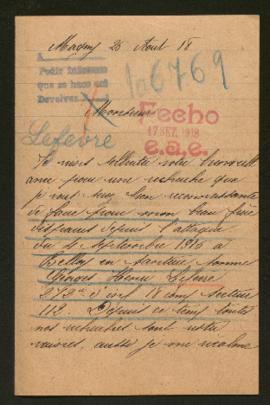 Magny 26 Aout 18
A
Pedir informes
que se hace ará
Devolver
106769
Monsieur
Fecho
17 SEZ. 1918
e.a.e.
Lefevre
Je viens solliciter votre bienveill
ance pour une recherche que
je vous serai bien reconnaissante
de faire pour mon beau frère
disparu depuis l'attaque
du 4 Septembre 1916 à
Belloy en Santerre Somme
Henri Lefevre
272me d'inf 18 comp Secteur
112. Depuis ce temps toutes
nos recherches sont restées
vaines, aussi je me réclame